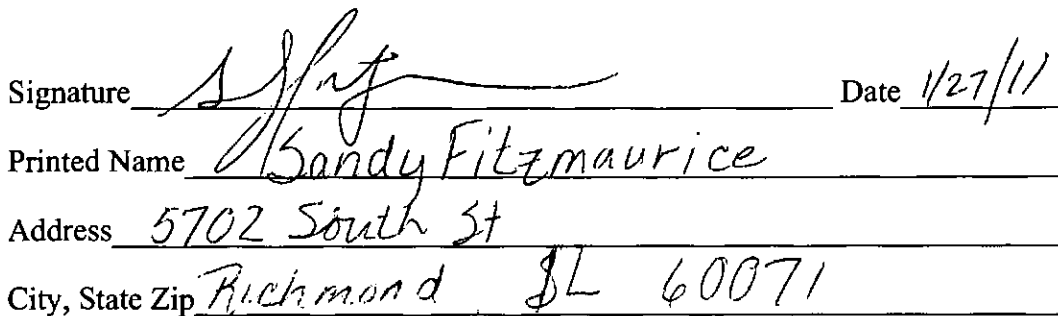 Signature Date 1/27/11
Printed Name Sandy Fitzmaurice
Address 5702 South St
City, State Zip Richmond IL 60071